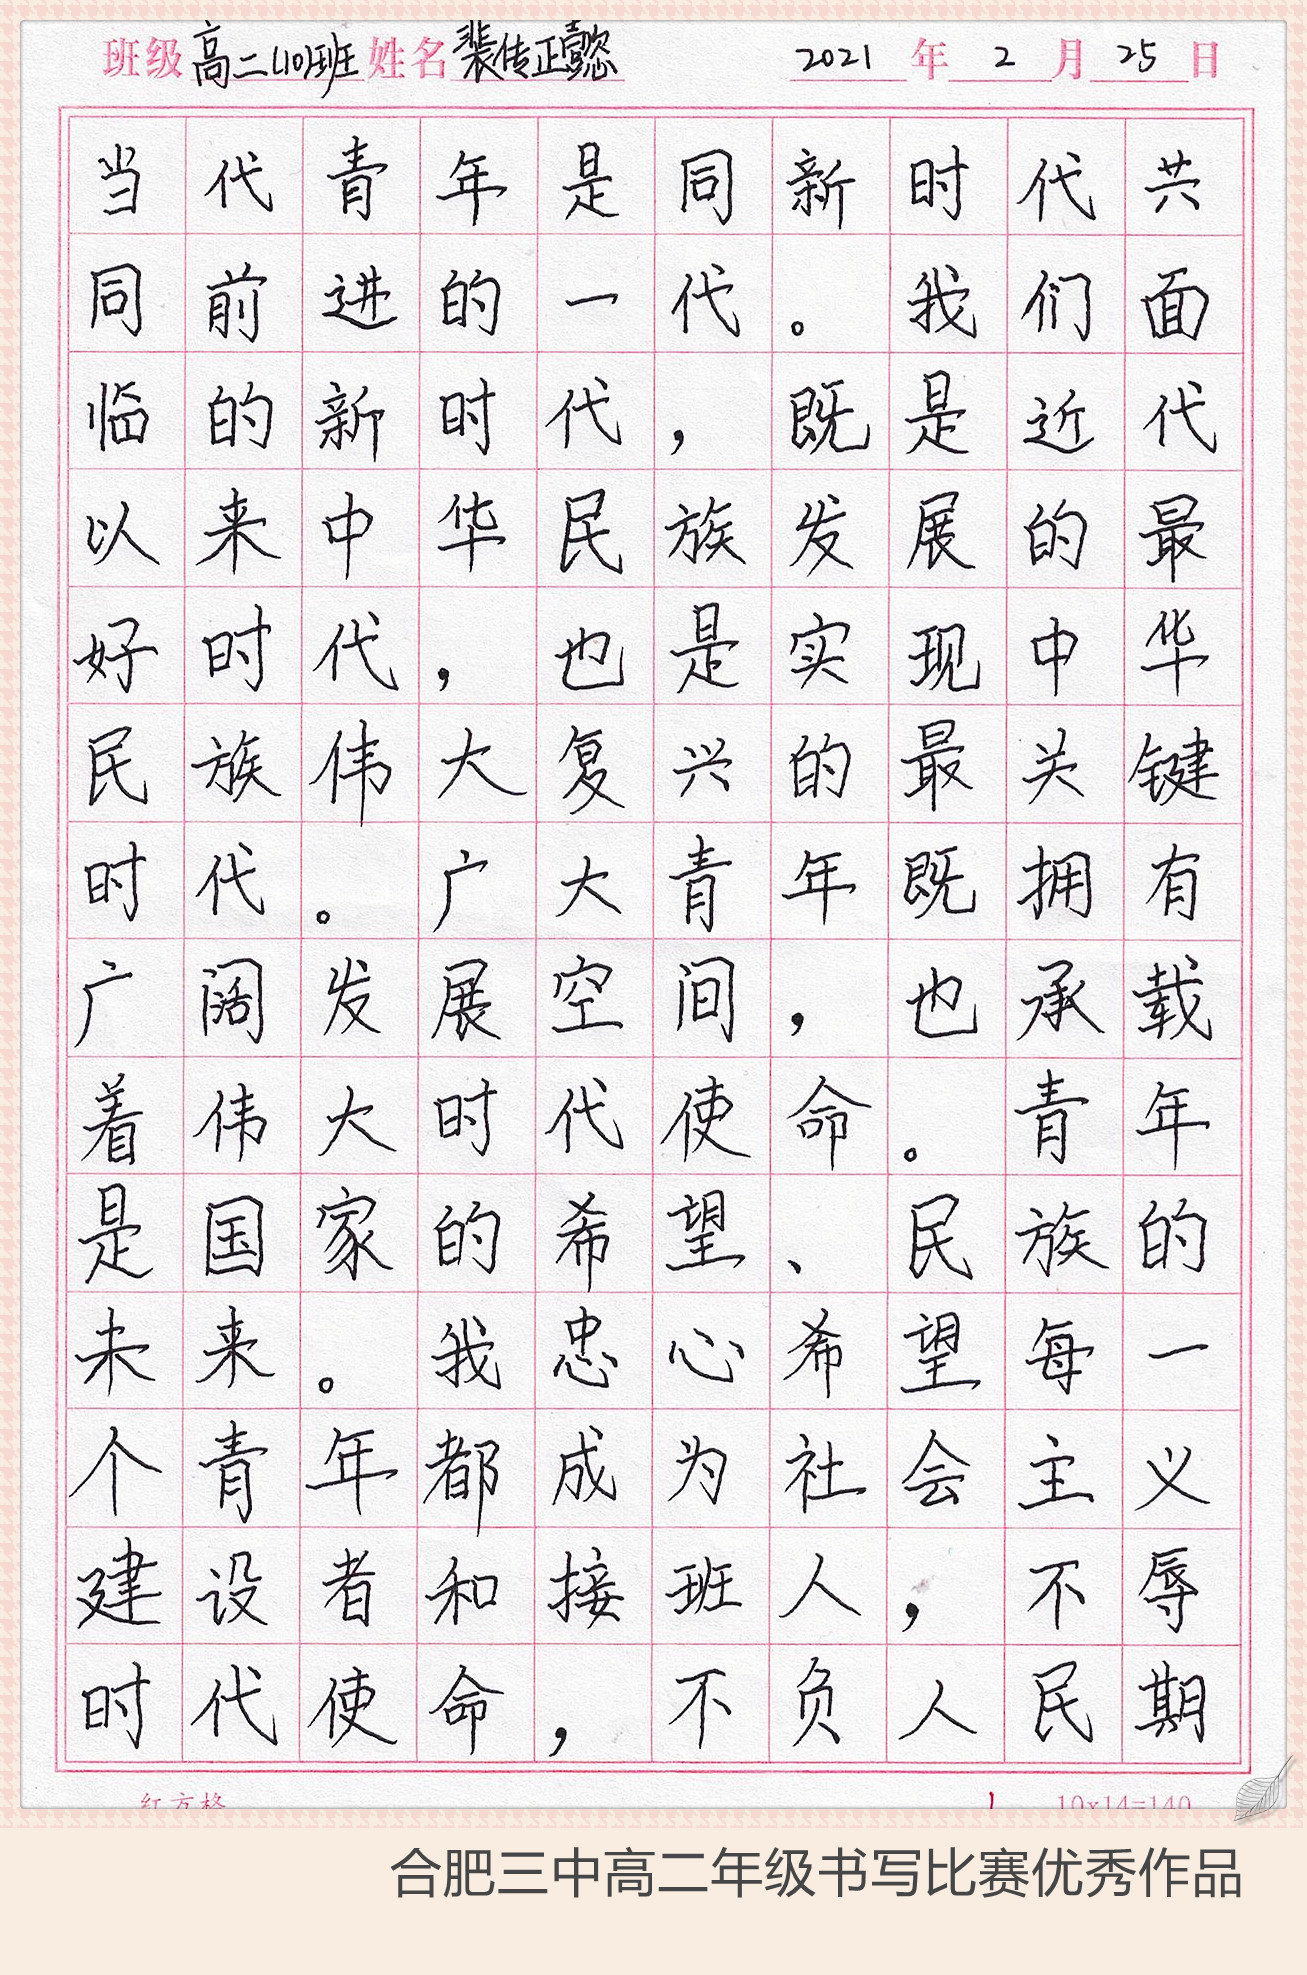 班级 高二(10)班 姓名 裴传正懿 2021 年 2 月 25 日
当代青年是同新时代共
同前进的一代。我们面
临的新时代，既是近代
以来中华民族发展的最
好时代，也是实现中华
民族伟大复兴的最关键
时代。广大青年既拥有
广阔发展空间，也承载
着伟大时代使命。青年
是国家的希望、民族的
未来。我忠心希望每一
个青年都成为社会主义
建设者和接班人，不辱
时代使命，不负人民期
红方格 1 10x14=140
合肥三中高二年级书写比赛优秀作品